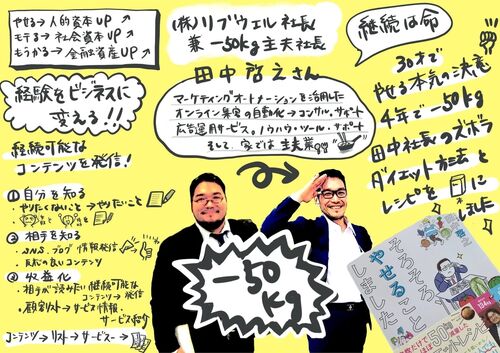 やせる → 人的資本UP ↗
モテる → 社会資本UP ↗
もうかる → 金融資産UP ↗
(株)リブウェル社長
兼 -50kg 主夫社長
田中啓之さん
マーケティングオートメーションを活用した
オンライン集客の自動化 → コンサル、サポート
広告運用サービス。ノウハウ・ツール・サポート
そして、家では主夫業
継続は命
30才で
やせる本気の決意
4年で-50kg
田中社長のズボラ
ダイエット方法と
レシピを
本にしました
経験をビジネスに
変える!!
継続可能な
コンテンツを発信!
① 自分を知る
・やりたくないこと → やりたいこと
② 相手を知る
・SNS、ブログ 情報発信
・反応の良いコンテンツ
③ 収益化
・相手が読みたい継続可能な
コンテンツ → 発信
・顧客リスト → サービス情報・
サービス紹介
コンテンツ → リスト → サービス →
-50
kg
そろそろ、
やせること
しました